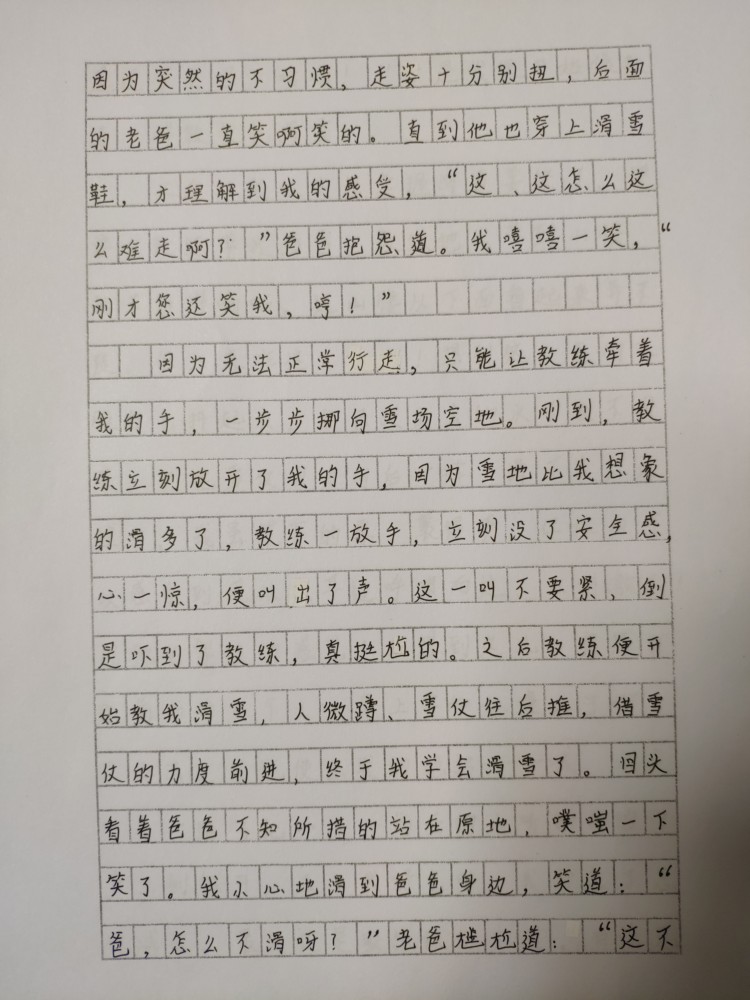 因为突然的不习惯，走姿十分别扭，后面
的老爸一直笑啊笑的。直到他也穿上滑雪
鞋，才理解到我的感受，“这、这怎么这
么难走啊？”爸爸抱怨道。我嘻嘻一笑，“
刚才您还笑我，哼！”
因为无法正常行走，只能让教练牵着
我的手，一步步挪向雪场空地。刚到，教
练立刻放开了我的手，因为雪地比我想象
的滑多了，教练一放手，立刻没了安全感，
心一惊，便叫出了声。这一叫不要紧，倒
是吓到了教练，真挺尬的。之后教练便开
始教我滑雪，人微蹲、雪仗往后推，借雪
仗的力度前进，终于我学会滑雪了。回头
看着爸爸不知所措的站在原地，噗嗤一下
笑了。我小心地滑到爸爸身边，笑道：“
爸，怎么不滑呀？”老爸尴尬道：“这不